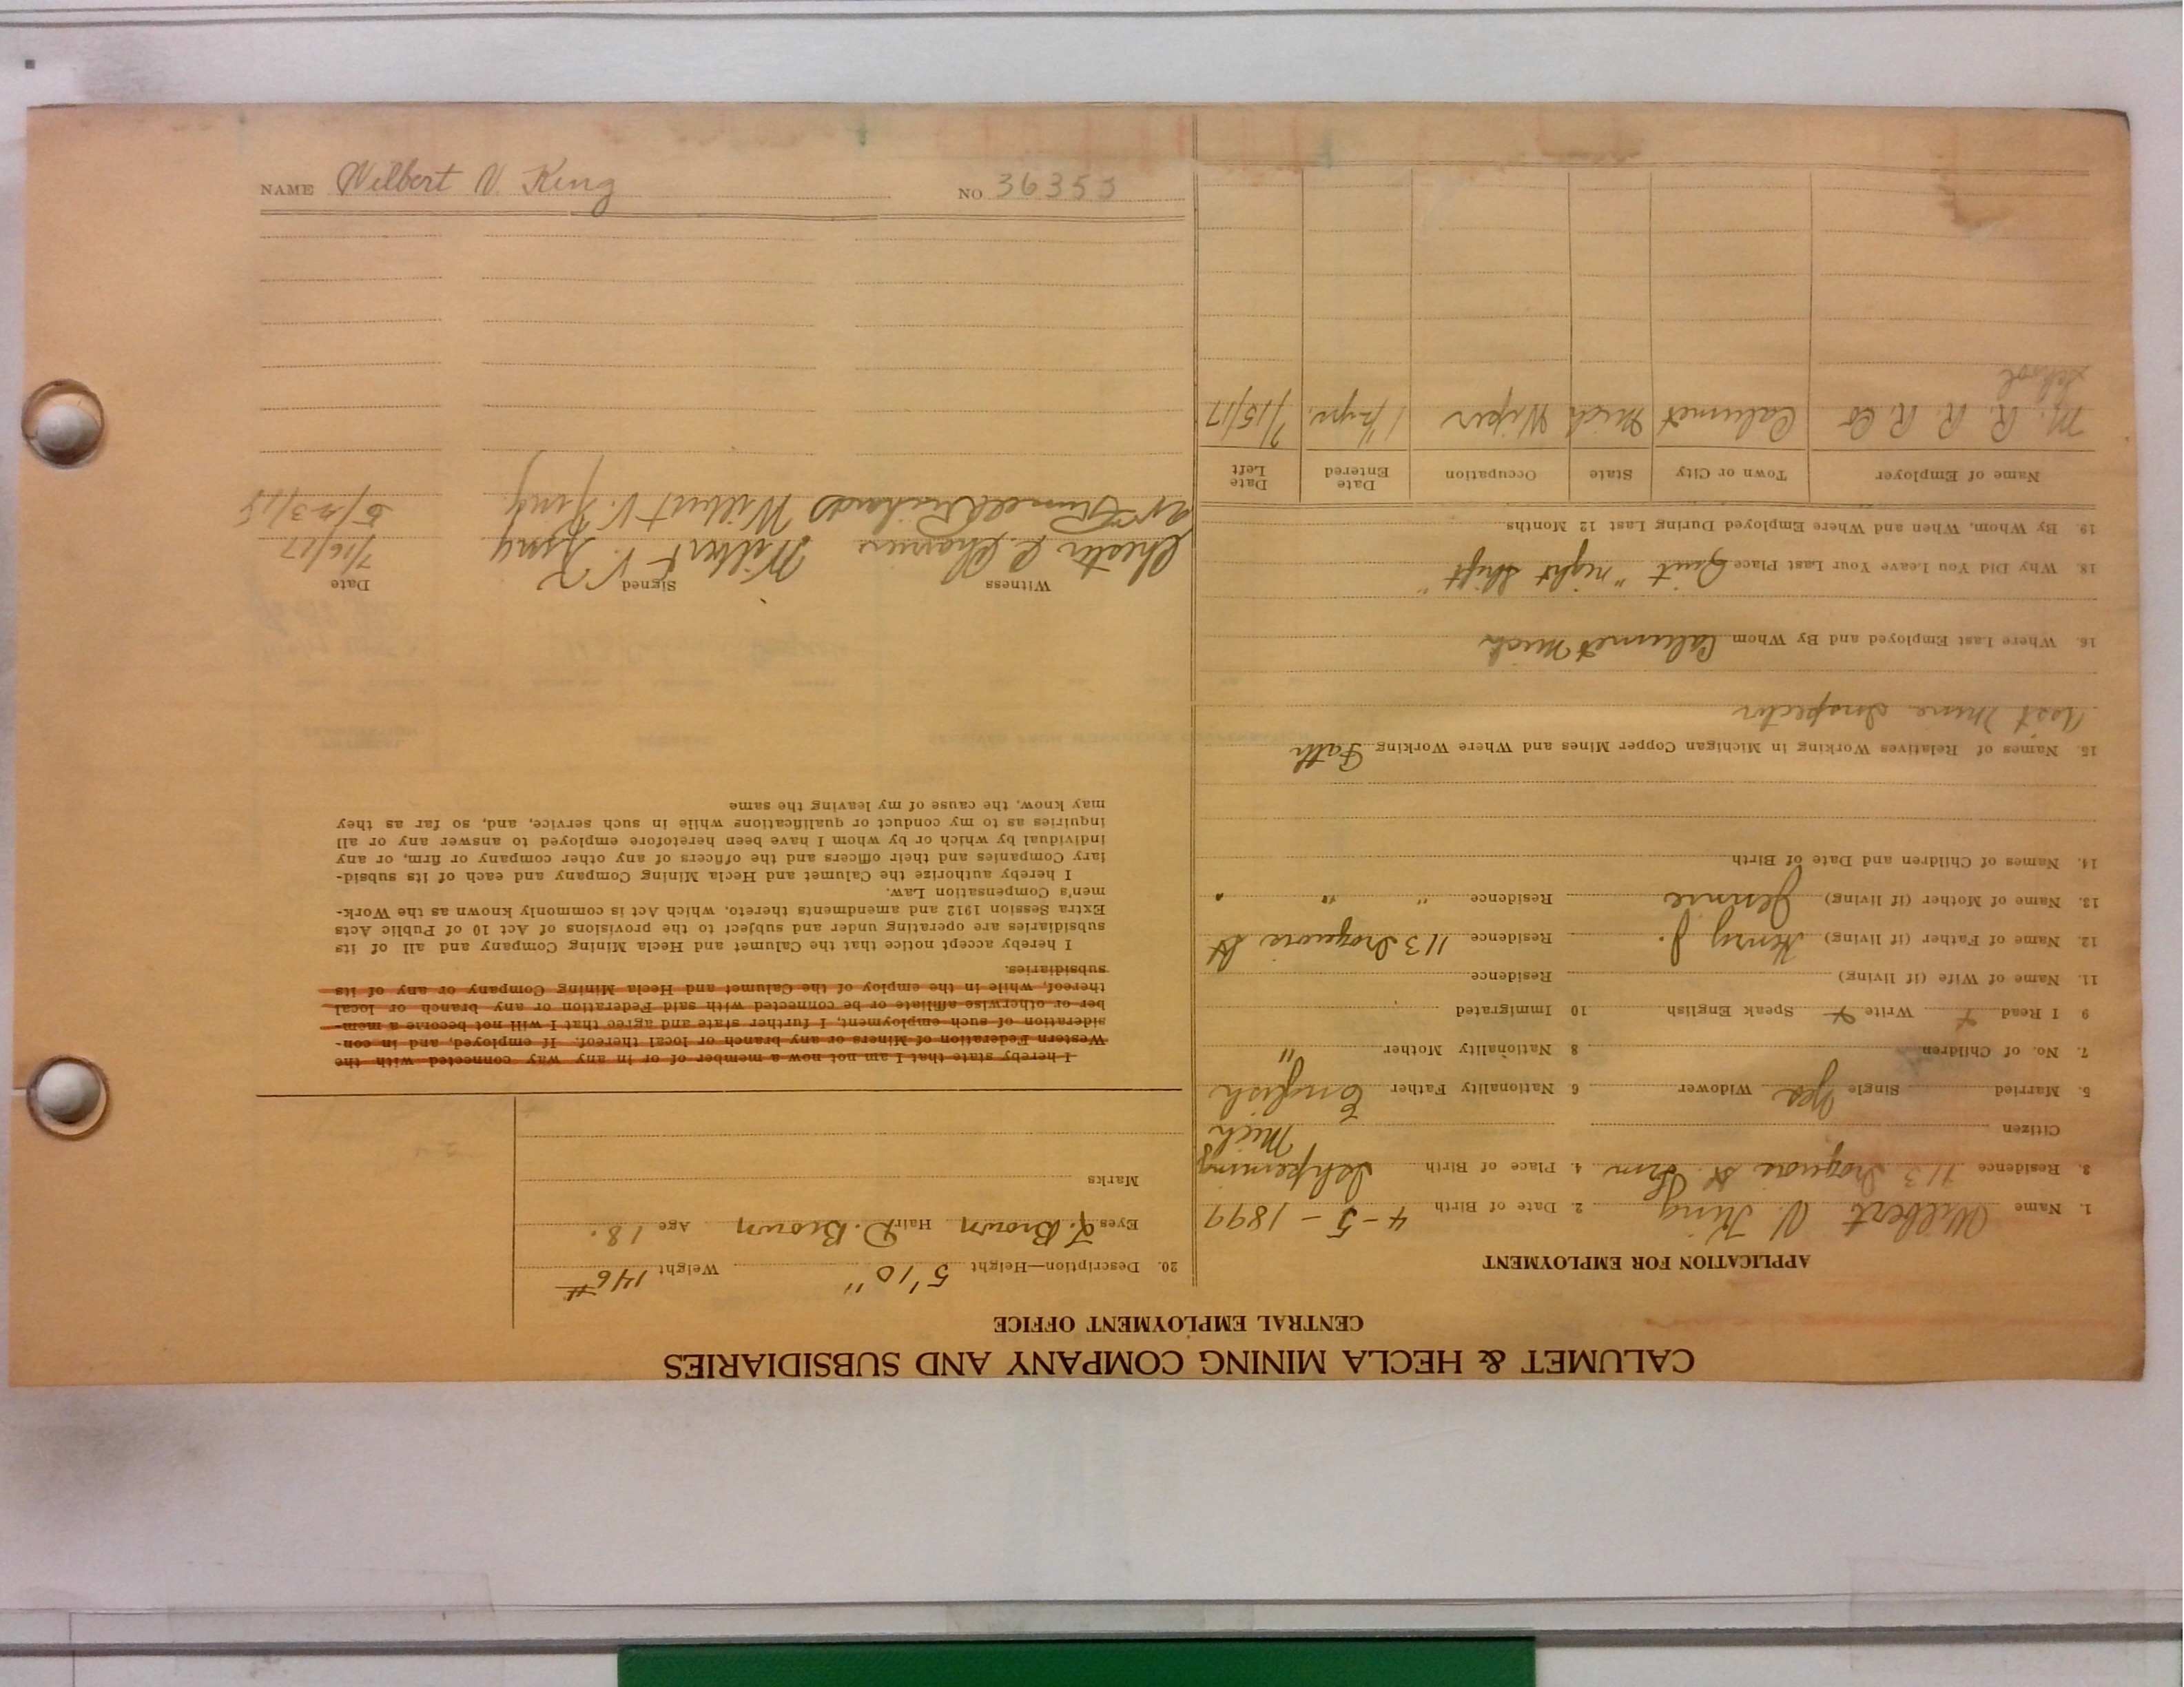 CALUMET & HECLA MINING COMPANY AND SUBSIDIARIES
CENTRAL EMPLOYMENT OFFICE
APPLICATION FOR EMPLOYMENT
1. Name Wilbert V. King 2. Date of Birth 4-5-1899
3. Residence 113 Iroquois St 4. Place of Birth Ishpeming
Mich
Citizen
5. Married Single Yes Widower 6. Nationality Father English
7. No. of Children 8 Nationality Mother "
9 I Read Write Speak English 10 Immigrated
11. Name of Wife (if living) Residence
12. Name of Father (if living) Henry J. Residence 113 Iroquois St
13. Name of Mother (if living) Jennie Residence " "
14. Names of Children and Date of Birth
15. Names of Relatives Working in Michigan Copper Mines and Where Working Fath
Asst Mine Inspector
16. Where Last Employed and By Whom Calumet Mich
18. Why Did You Leave Your Last Place Quit "night shift"
19. By Whom, When and Where Employed During Last 12 Months
Name of Employer Town or City State Occupation Date Entered Date Left
M. R. R. R. Co Calumet Mich Wiper 1 1/2 yr. 7/15/17
School
20. Description—Height 5'10" Weight 146#
Eyes L. Brown Hair D. Brown Age 18.
Marks
I hereby state that I am not now a member of or in any way connected with the
Western Federation of Miners or any branch or local thereof. If employed, and in con-
sideration of such employment, I further state and agree that I will not become a mem-
ber or otherwise affiliate or be connected with said Federation or any branch or local
thereof, while in the employ of the Calumet and Hecla Mining Company or any of its
subsidiaries.
I hereby accept notice that the Calumet and Hecla Mining Company and all of its
subsidiaries are operating under and subject to the provisions of Act 10 of Public Acts
Extra Session 1912 and amendments thereto, which Act is commonly known as the Work-
men's Compensation Law.
I hereby authorize the Calumet and Hecla Mining Company and each of its subsid-
iary Companies and their officers and the officers of any other company or firm, or any
individual by which or by whom I have been heretofore employed to answer any or all
inquiries as to my conduct or qualifications while in such service, and, so far as they
may know, the cause of my leaving the same
Witness Signed Date
Chester L. Wilbert V. King 7/16/17
Richards Wilbert V. King 5/23/18
NAME Wilbert V. King NO 36353